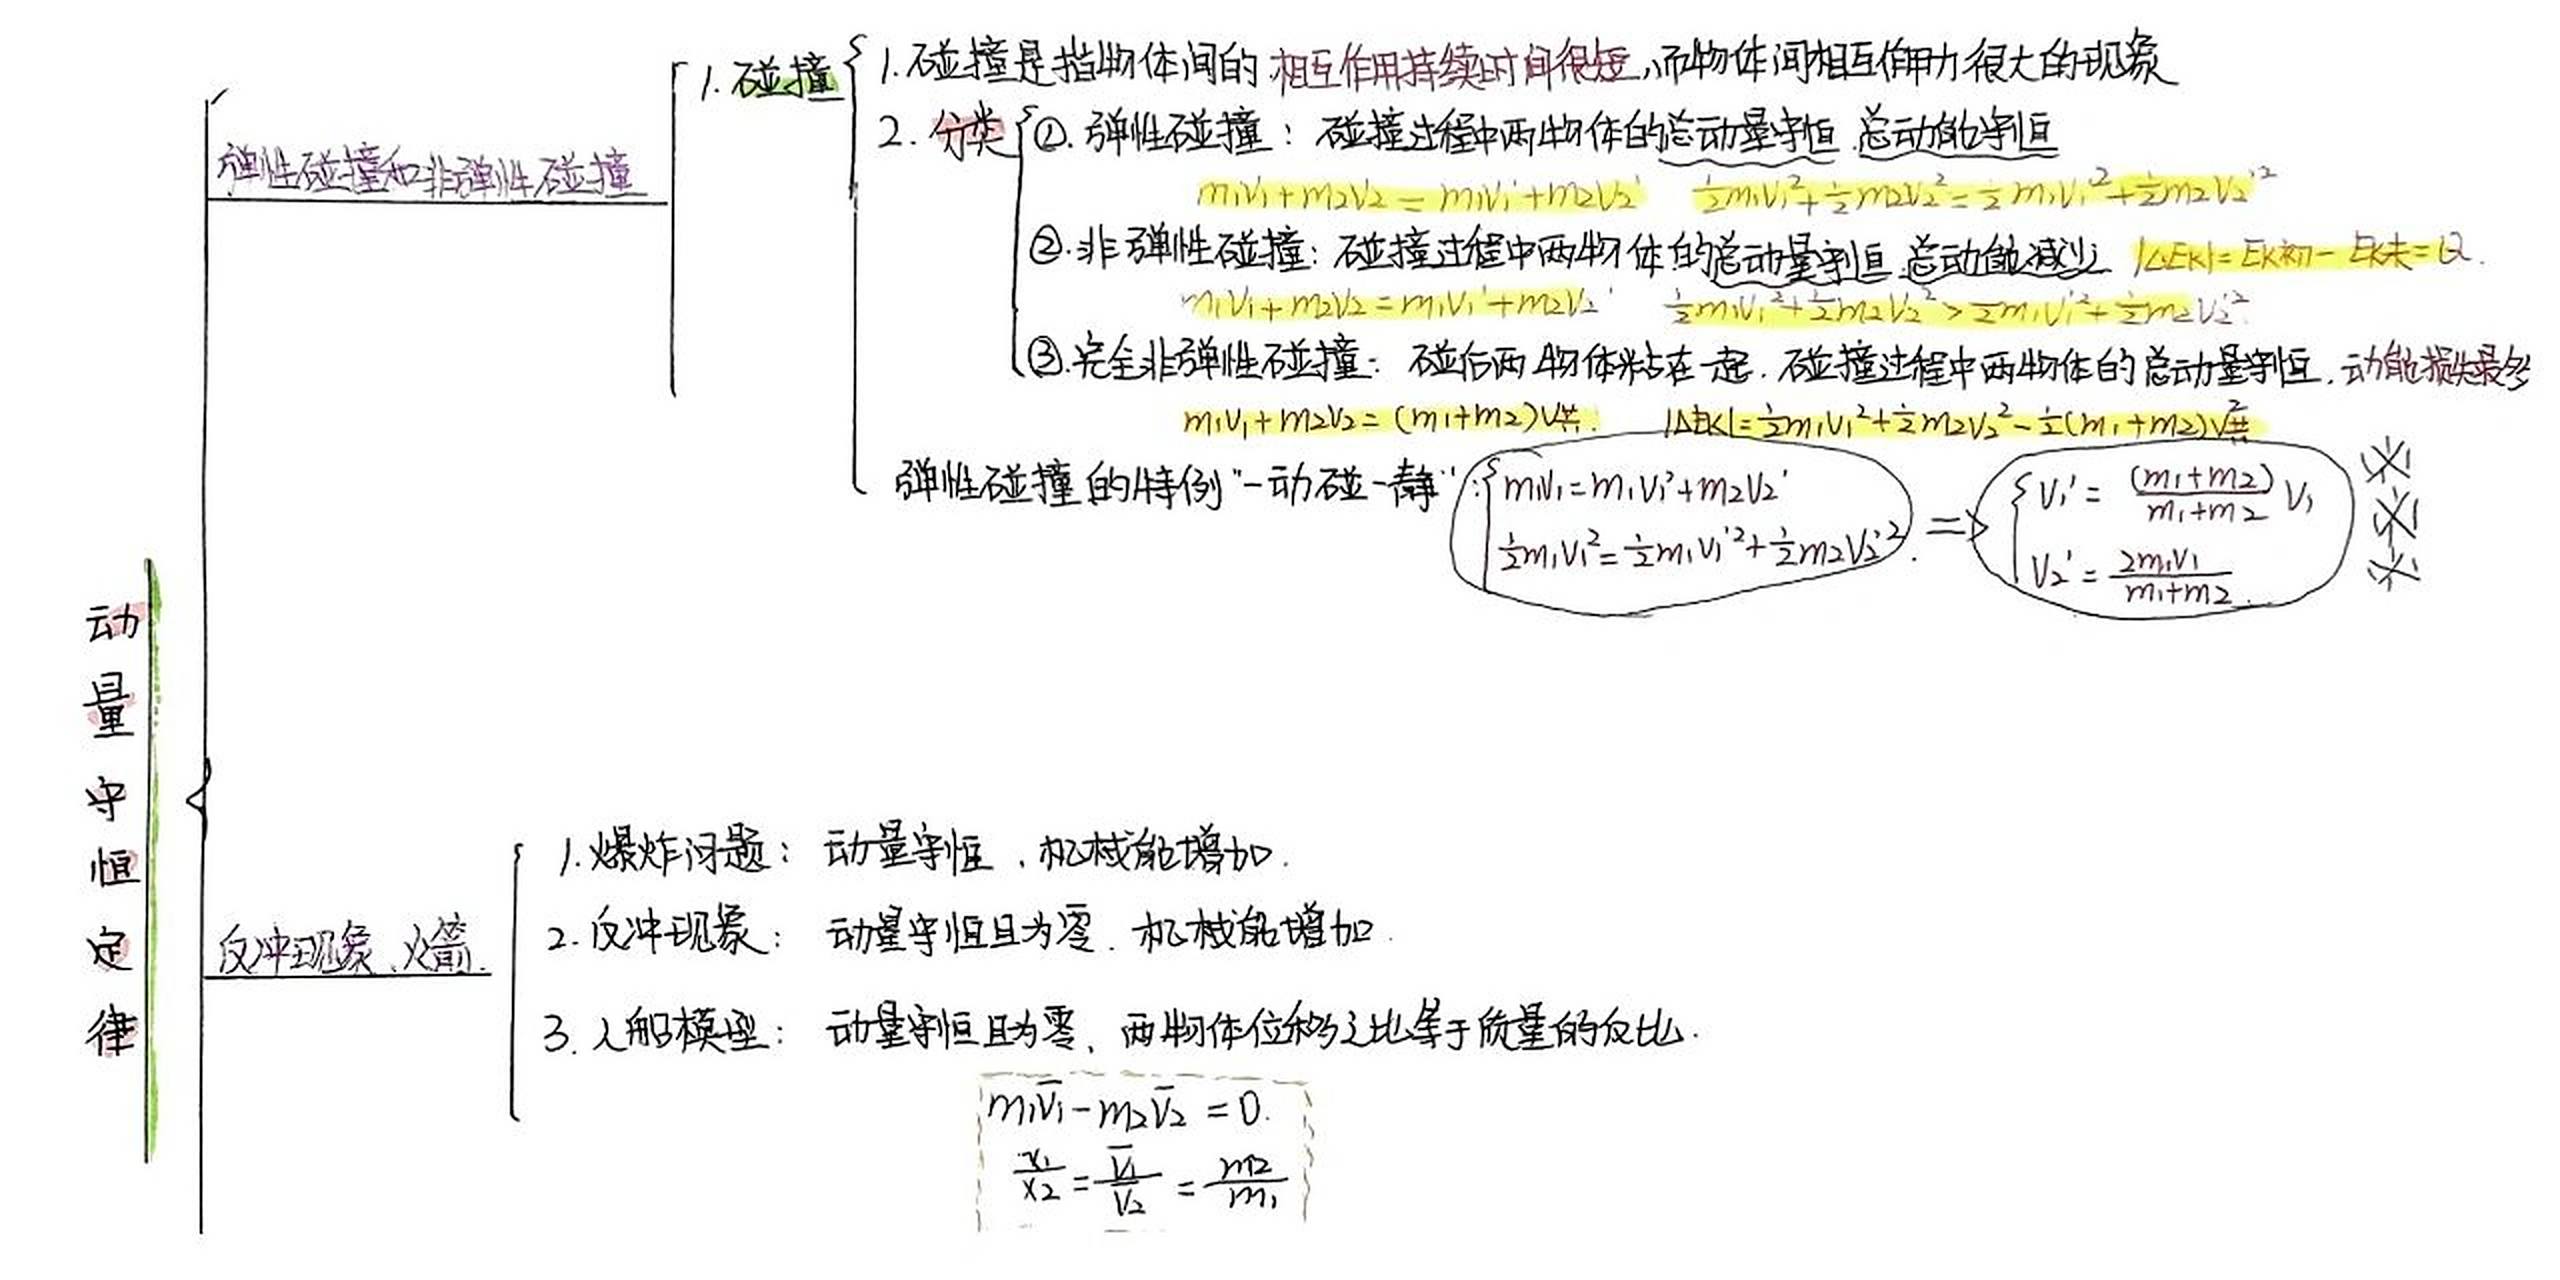 动量守恒定律
弹性碰撞和非弹性碰撞
1. 碰撞
1. 碰撞是指物体间的相互作用持续时间很短,而物体间相互作用力很大的现象
2. 分类
①. 弹性碰撞: 碰撞过程中两物体的总动量守恒 总动能守恒
m₁v₁+m₂v₂=m₁v₁'+m₂v₂' ½m₁v₁²+½m₂v₂²=½m₁v₁'²+½m₂v₂'²
②. 非弹性碰撞: 碰撞过程中两物体的总动量守恒 总动能减少 |ΔEk|=Ek初-Ek末=Q.
m₁v₁+m₂v₂=m₁v₁'+m₂v₂' ½m₁v₁²+½m₂v₂²>½m₁v₁'²+½m₂v₂'².
③. 完全非弹性碰撞: 碰后两物体粘在一起. 碰撞过程中两物体的总动量守恒. 动能损失最多
m₁v₁+m₂v₂=(m₁+m₂)v共. |ΔEk|=½m₁v₁²+½m₂v₂²-½(m₁+m₂)v共²
弹性碰撞的特例"一动碰一静":
m₁v₁=m₁v₁'+m₂v₂'
½m₁v₁²=½m₁v₁'²+½m₂v₂'².
=>
v₁'=(m₁+m₂)/(m₁+m₂) v₁
v₂'=2m₁v₁/(m₁+m₂).
反冲现象、火箭.
1. 爆炸问题: 动量守恒、机械能增加.
2. 反冲现象: 动量守恒且为零. 机械能增加.
3. 人船模型: 动量守恒且为零、两物体位移之比等于质量的反比.
m₁v̄₁-m₂v̄₂=0.
x₁/x₂=v̄₁/v̄₂=m₂/m₁